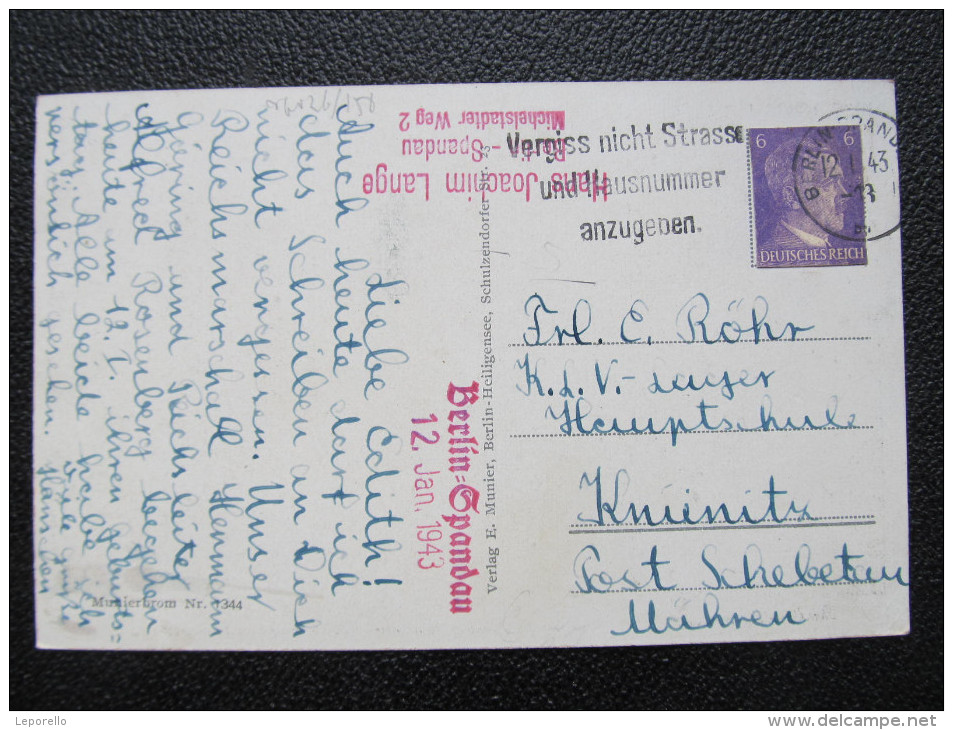 Liebe Edith!
Auch heute darf ich
das Schreiben an Dich
nicht vergessen. Unser
Reichsmarschall Hermann
Göring und Reichsleiter
Alfred Rosenberg begehen
heute um 12. I. ihren Geburts=
tag. Alle beide habe ich
persönlich gesehen.
Hänschen
Hans Joachim Lange
Berlin-Spandau
Michelstadter Weg 2
Berlin=Spandau
12. Jan. 1943
Verlag E. Munier, Berlin-Heiligensee, Schulzendorfer Str.
Munierbrom Nr. 1344
Vergiss nicht Strasse
und Hausnummer
anzugeben.
6 6
DEUTSCHES REICH
BERLIN SPANDAU
12.1.43
Frl. E. Röhr
K.L.V.-Lager
Hauptschule
Knienitz
Post Schebetau
Mähren
Leporello
www.delcampe.net